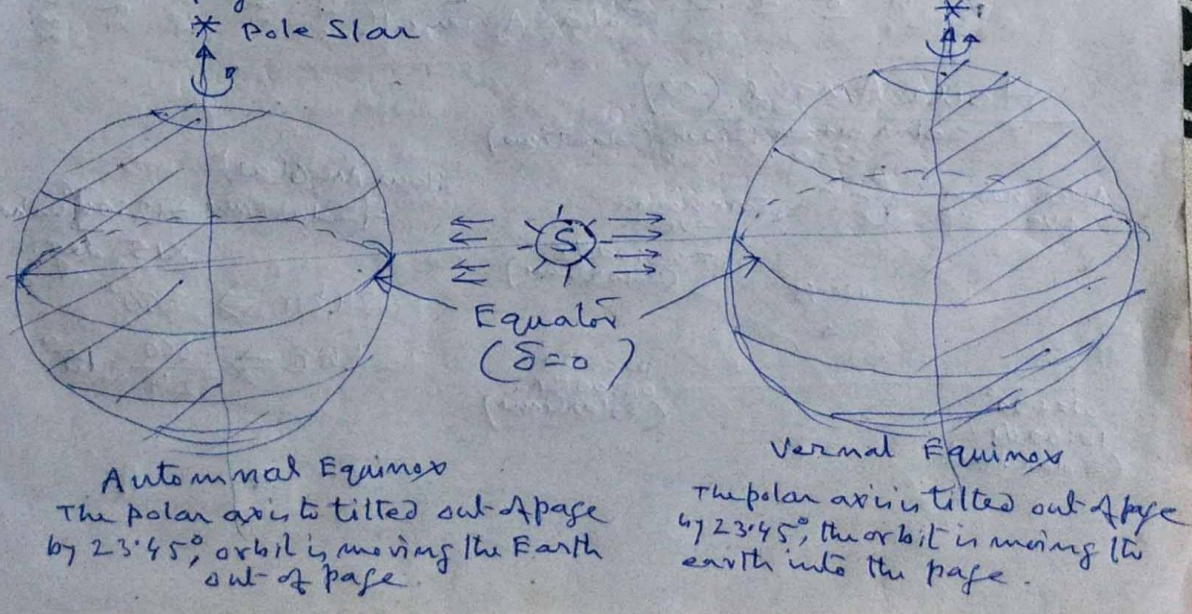 * Pole Star
S
Equator
(δ=0)
Autumnal Equinox
The polar axis is tilted out of page
by 23.45°, orbit is moving the Earth
out of page.
Vernal Equinox
The polar axis is tilted out of page
by 23.45°, the orbit is moving the
earth into the page.